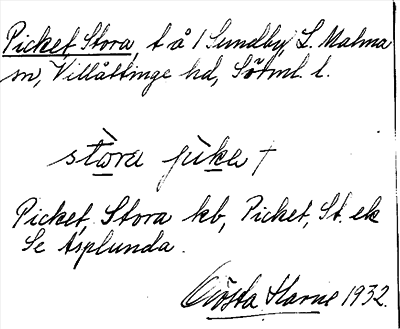 Picket, Stora, t å 1 Sundby, L. Malma
sn, Villåttinge hd, Sörml. l.
stòra pìka †
Picket, Stora kb, Picket, St. ek
Se Äsplunda.
Gösta 1932.